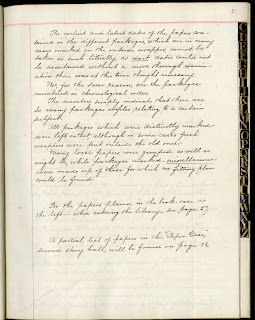 The earliest and latest dates of the papers con-
tained in the different packages, which are in many
cases marked on the outside wrapper cannot be
taken as such literally, as exact dates could not
be ascertained without a more thorough exami-
nation than was at the time thought necessary.
Nor, for the same reason, are the packages
numbered in chronological order.
The numbers simply indicate that there are
so many packages of files relating to a certain
subject.
All packages which were distinctly marked
were left intact although in some cases fresh
wrappers were put outside the old one.
Many loose papers were grouped as well as
might be, while packages marked miscellaneous
were made up of those for which no fitting place
could be found.
For the papers placed in the book-case on
the left when entering the library see page 57,
A partial list of papers in the "Paper Desk,"
second story hall, will be found on page